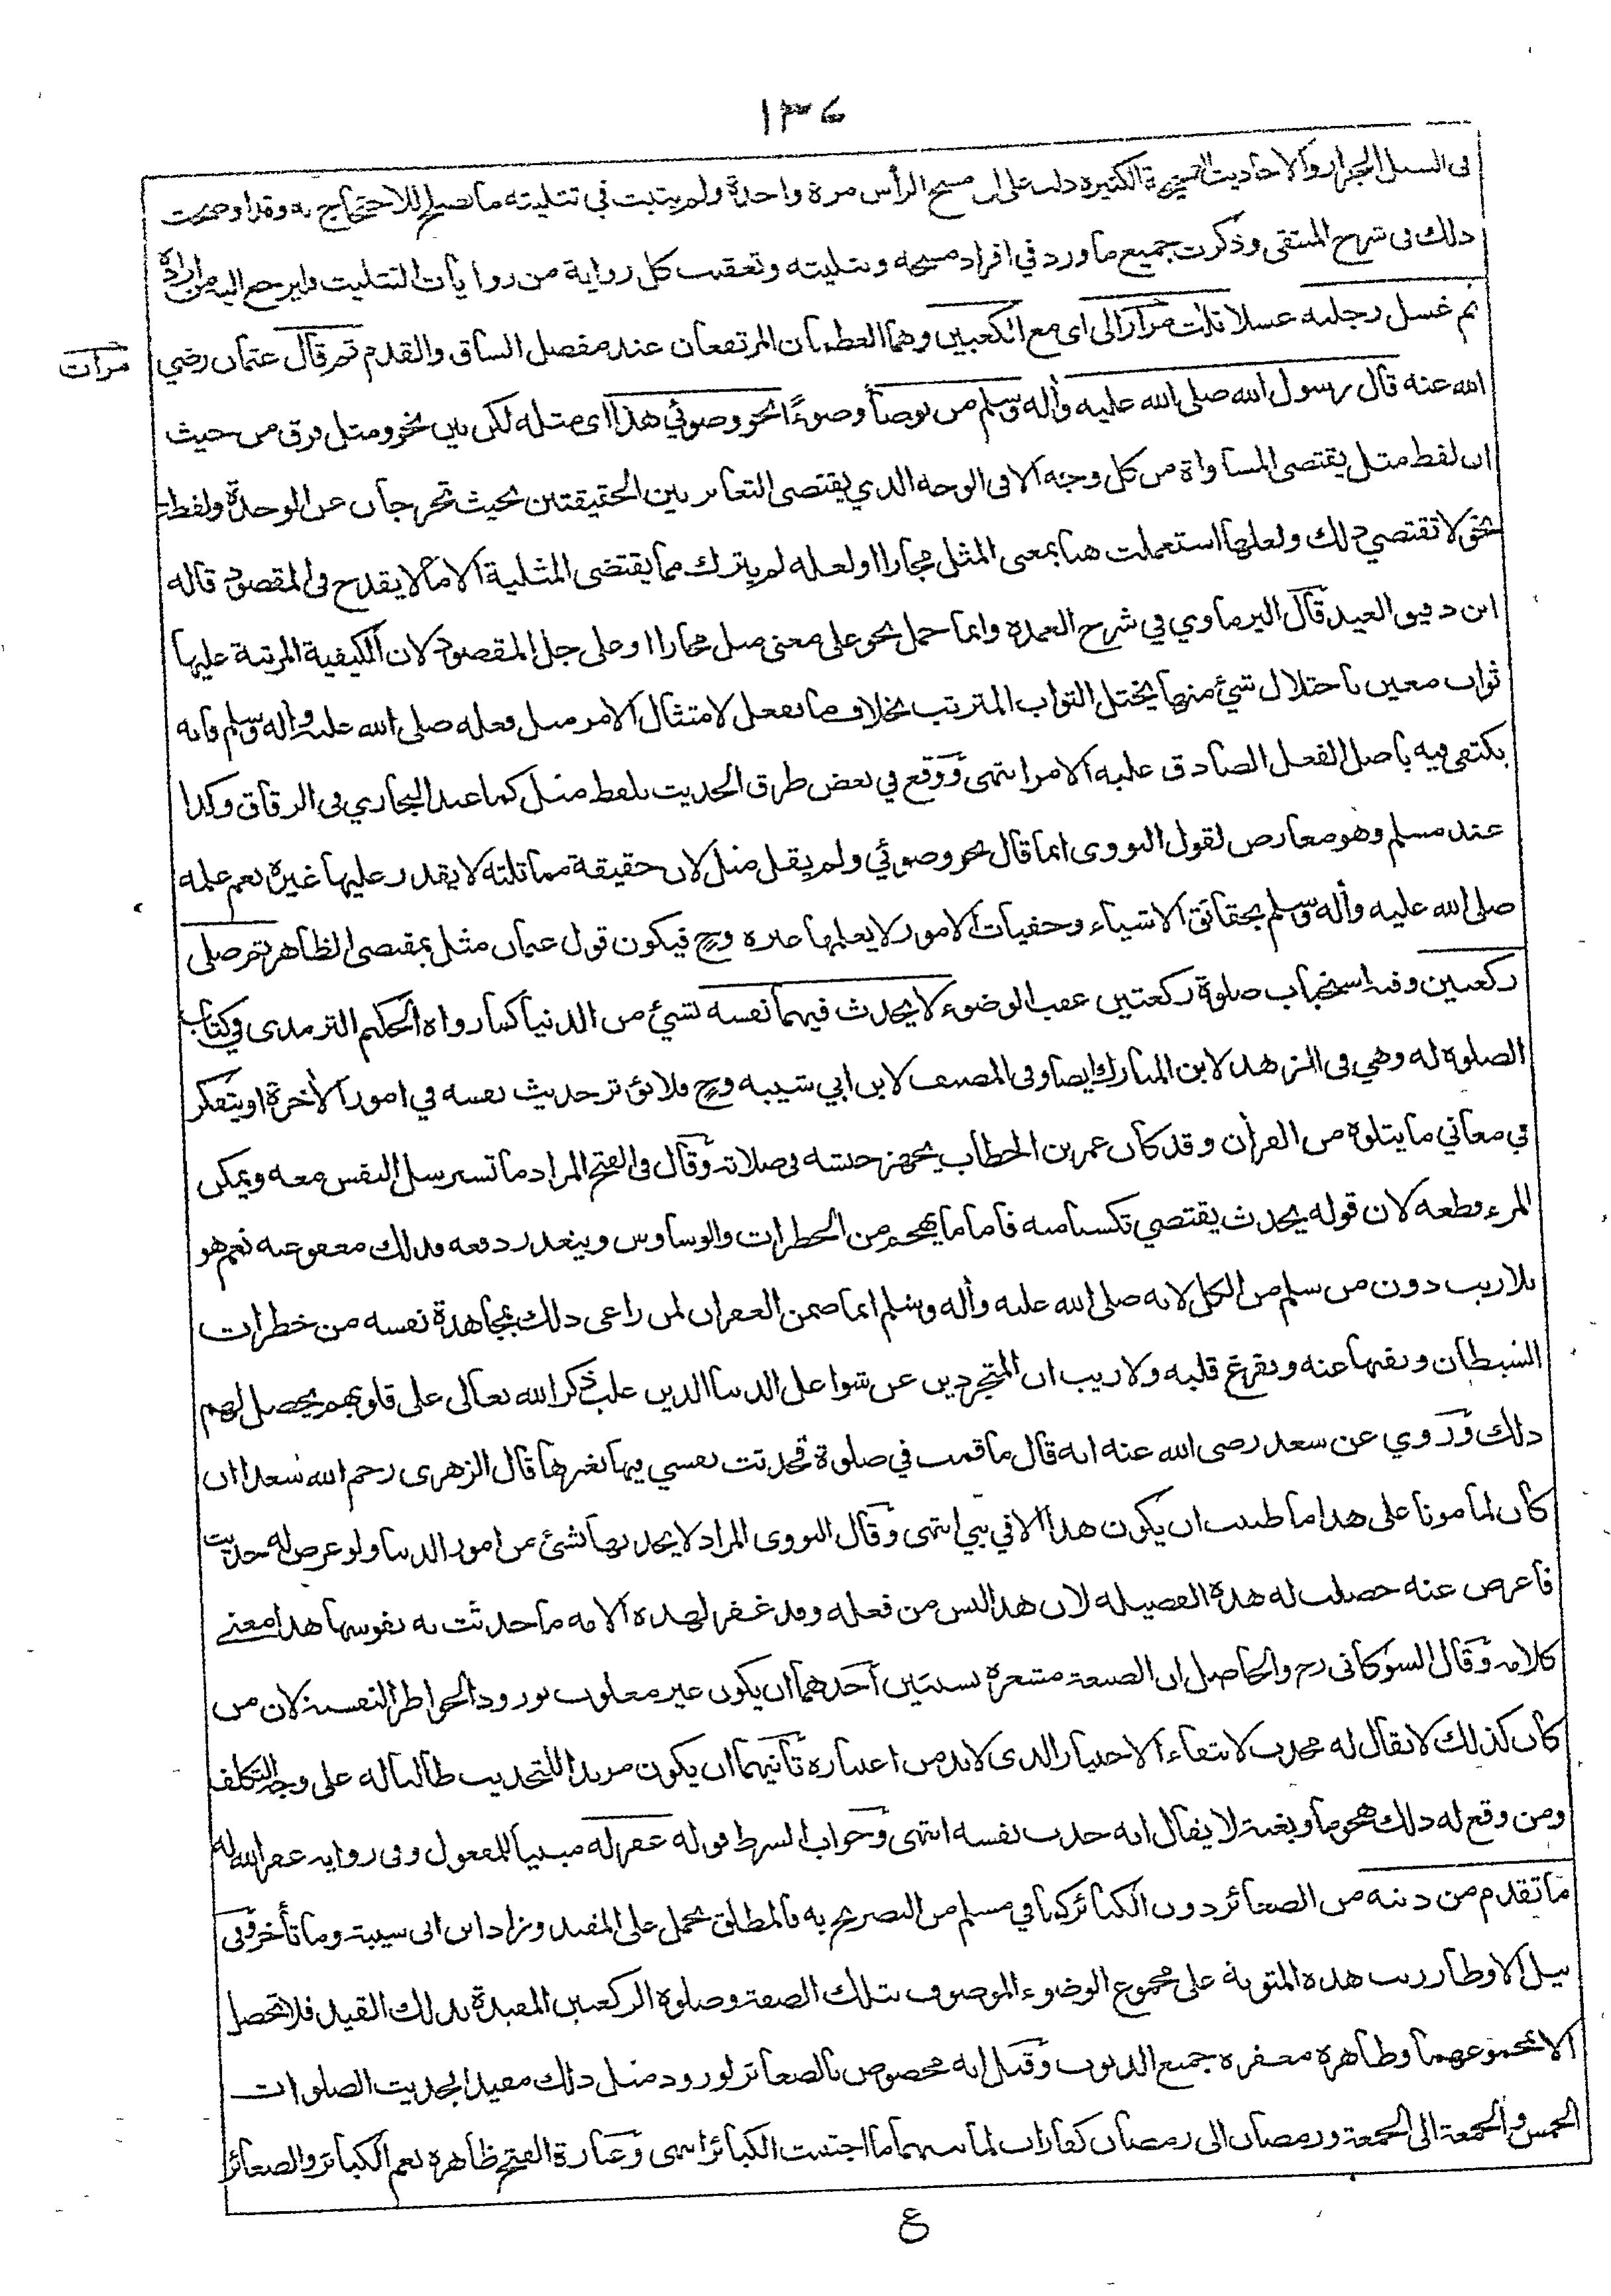 ١٣٦
فى السيل الجرار والاحاديث الصحيحة الكثيرة دلت على ان مسح الرأس مرة واحدة ولم يثبت في تثليثه ما يصلح للاحتجاج به وقد اوضحت
ذلك فى شرح المنتقى وذكرت جميع ما ورد في افراد مسحه وتثليثه وتعقبت كل رواية من روايات التثليث فليرجع اليه من اراده
ثم غسل رجليه غسلا ثلاث مرار الى اى مع الكعبين وهما العظمان المرتفعان عند مفصل الساق والقدم ثم قال عثمان رضي
مرات
الله عنه قال رسول الله صلى الله عليه وأله وسلم من توضأ وضوءًا نحو وضوئي هذا اى مثله لكن بين نحو ومثل فرق من حيث
ان لفظ مثل يقتضى المساواة من كل وجه الا فى الوجه الذي يقتضى التغاير بين الحقيقتين بحيث تخرجان عن الوحدة ولفظ
نحو لا تقتضي ذلك ولعلها استعملت هنا بمعنى المثل مجازا او لعله لم يترك مما يقتضى المثلية الا ما لا يقدح فى المقصود قاله
ابن دقيق العيد قال البرماوي في شرح العمدة وانما حمل نحو على معنى مثل مجازا او على جل المقصود لان الكيفية المرتبة عليها
ثواب معين باختلال شئ منها يختل الثواب المترتب بخلاف ما يفعل لامتثال الامر مثل فعله صلى الله عليه وأله وسلم فانه
يكتفى فيه باصل الفعل الصادق عليه الامر انتهى ووقع في بعض طرق الحديث بلفظ مثل كما عند البخاري فى الرقاق وكذا
عند مسلم وهو معارض لقول النووى انما قال نحو وضوئي ولم يقل مثل لان حقيقة مماثلته لا يقدر عليها غيره نعم علمه
صلى الله عليه وأله وسلم بحقائق الاشياء وخفيات الامور لا يعلمها غيره وح فيكون قول عثمان مثل بمقتضى الظاهر ثم صلى
ركعتين وفيه استحباب صلوة ركعتين عقب الوضوء لا يحدث فيهما نفسه بشئ من الدنيا كما رواه الحكيم الترمذى في كتاب
الصلوة له وهي فى الزهد لابن المبارك ايضا وفى المصنف لابن ابي شيبه وح فلا يؤثر حديث نفسه في امور الأخرة او يتفكر
في معاني ما يتلوه من القرأن وقد كان عمر بن الخطاب يجهز جيشه فى صلاته وقال فى الفتح المراد ما تسترسل النفس معه ويمكن
المرء قطعه لان قوله يحدث يقتضي تكسبا منه فاما ما يهجم من الخطرات والوساوس ويتعذر دفعه فذلك معفو عنه نعم هو
بلا ريب دون من سلم من الكل لانه صلى الله عليه وأله وسلم انما ضمن الغفران لمن راعى ذلك بمجاهدة نفسه من خطرات
الشيطان ونفيها عنه وتفرغ قلبه ولا ريب ان المتجردين عن شواغل الدنيا الذين غلب ذكر الله تعالى على قلوبهم يحصل لهم
ذلك وروي عن سعد رضى الله عنه انه قال ما قمت في صلوة فحدثت نفسي فيها بغيرها قال الزهرى رحم الله سعدا ان
كان لمأمونا على هذا ما ظننت ان يكون هذا الا في نبي انتهى وقال النووى المراد لا يحدثها بشئ من امور الدنيا ولو عرض له حديث
فاعرض عنه حصلت له هذه الفضيلة لان هذا ليس من فعله وقد غفر لهذه الامة ما حدثت به نفوسها هذا معنى
كلامه وقال الشوكانى رح والحاصل ان الصيغة مشعرة بشيئين أحدهما ان يكون غير مغلوب بورود الخواطر النفسية لان من
كان كذلك لا يقال له محدث لانتفاء الاختيار الذى لا بد من اعتباره ثانيهما ان يكون مريدا للتحديث طالبا له على وجه التكلف
ومن وقع له ذلك هجوما وبغتة لا يقال انه حدث نفسه انتهى وجواب الشرط قوله غفر له مبنيا للمفعول وفى رواية غفر الله له
ما تقدم من ذنبه من الصغائر دون الكبائر كما في مسلم من التصريح به فالمطلق يحمل على المقيد وزاد ابن ابى شيبة وما تأخر وفى
نيل الاوطار رتب هذه المثوبة على مجموع الوضوء الموصوف بتلك الصفة وصلوة الركعتين المقيدة بذلك القيد فلا تحصل
الا بمجموعهما وظاهره مغفرة جميع الذنوب وقيل انه مخصوص بالصغائر لورود مثل ذلك مقيدا بحديث الصلوات
الخمس والجمعة الى الجمعة ورمضان الى رمضان كفارات لما بينهما ما اجتنبت الكبائر انتهى وعبارة الفتح ظاهره نعم الكبائر والصغائر
ع